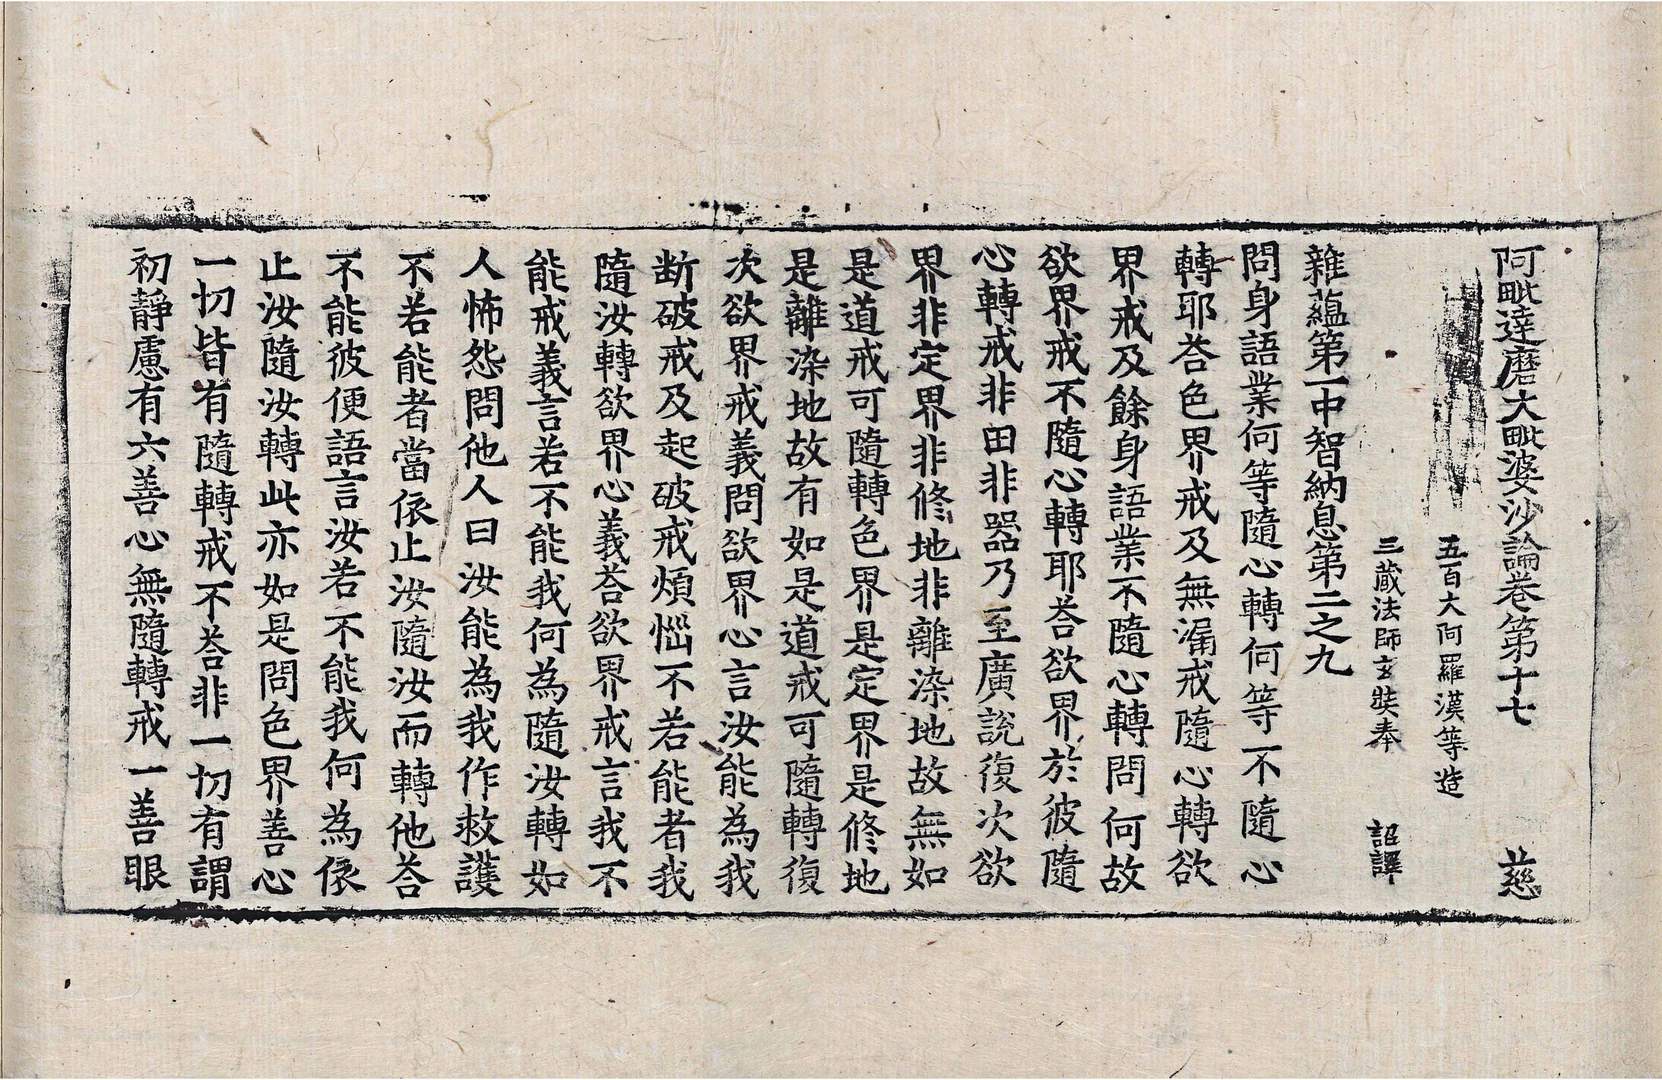 阿毗達磨大毗婆沙論卷第十七 慈
五百大阿羅漢等造
三藏法師玄奘奉 詔譯
雜蘊第一中智納息第二之九
問身語業何等隨心轉何等不隨心
轉耶荅色界戒及無漏戒隨心轉欲
界戒及餘身語業不隨心轉問何故
欲界戒不隨心轉耶荅欲界於彼隨
心轉戒非田非器乃至廣說復次欲
界非定界非修地非離染地故無如
是道戒可隨轉色界是定界是修地
是離染地故有如是道戒可隨轉復
次欲界戒義問欲界心言汝能為我
断破戒及起破戒煩惱不若能者我
隨汝轉欲界心義荅欲界戒言我不
能戒義言若不能我何為隨汝轉如
人怖怨問他人曰汝能為我作救護
不若能者當依止汝隨汝而轉他荅
不能彼便語言汝若不能我何為依
止汝隨汝轉此亦如是問色界善心
一切皆有隨轉戒不荅非一切有謂
初靜慮有六善心無隨轉戒一善眼